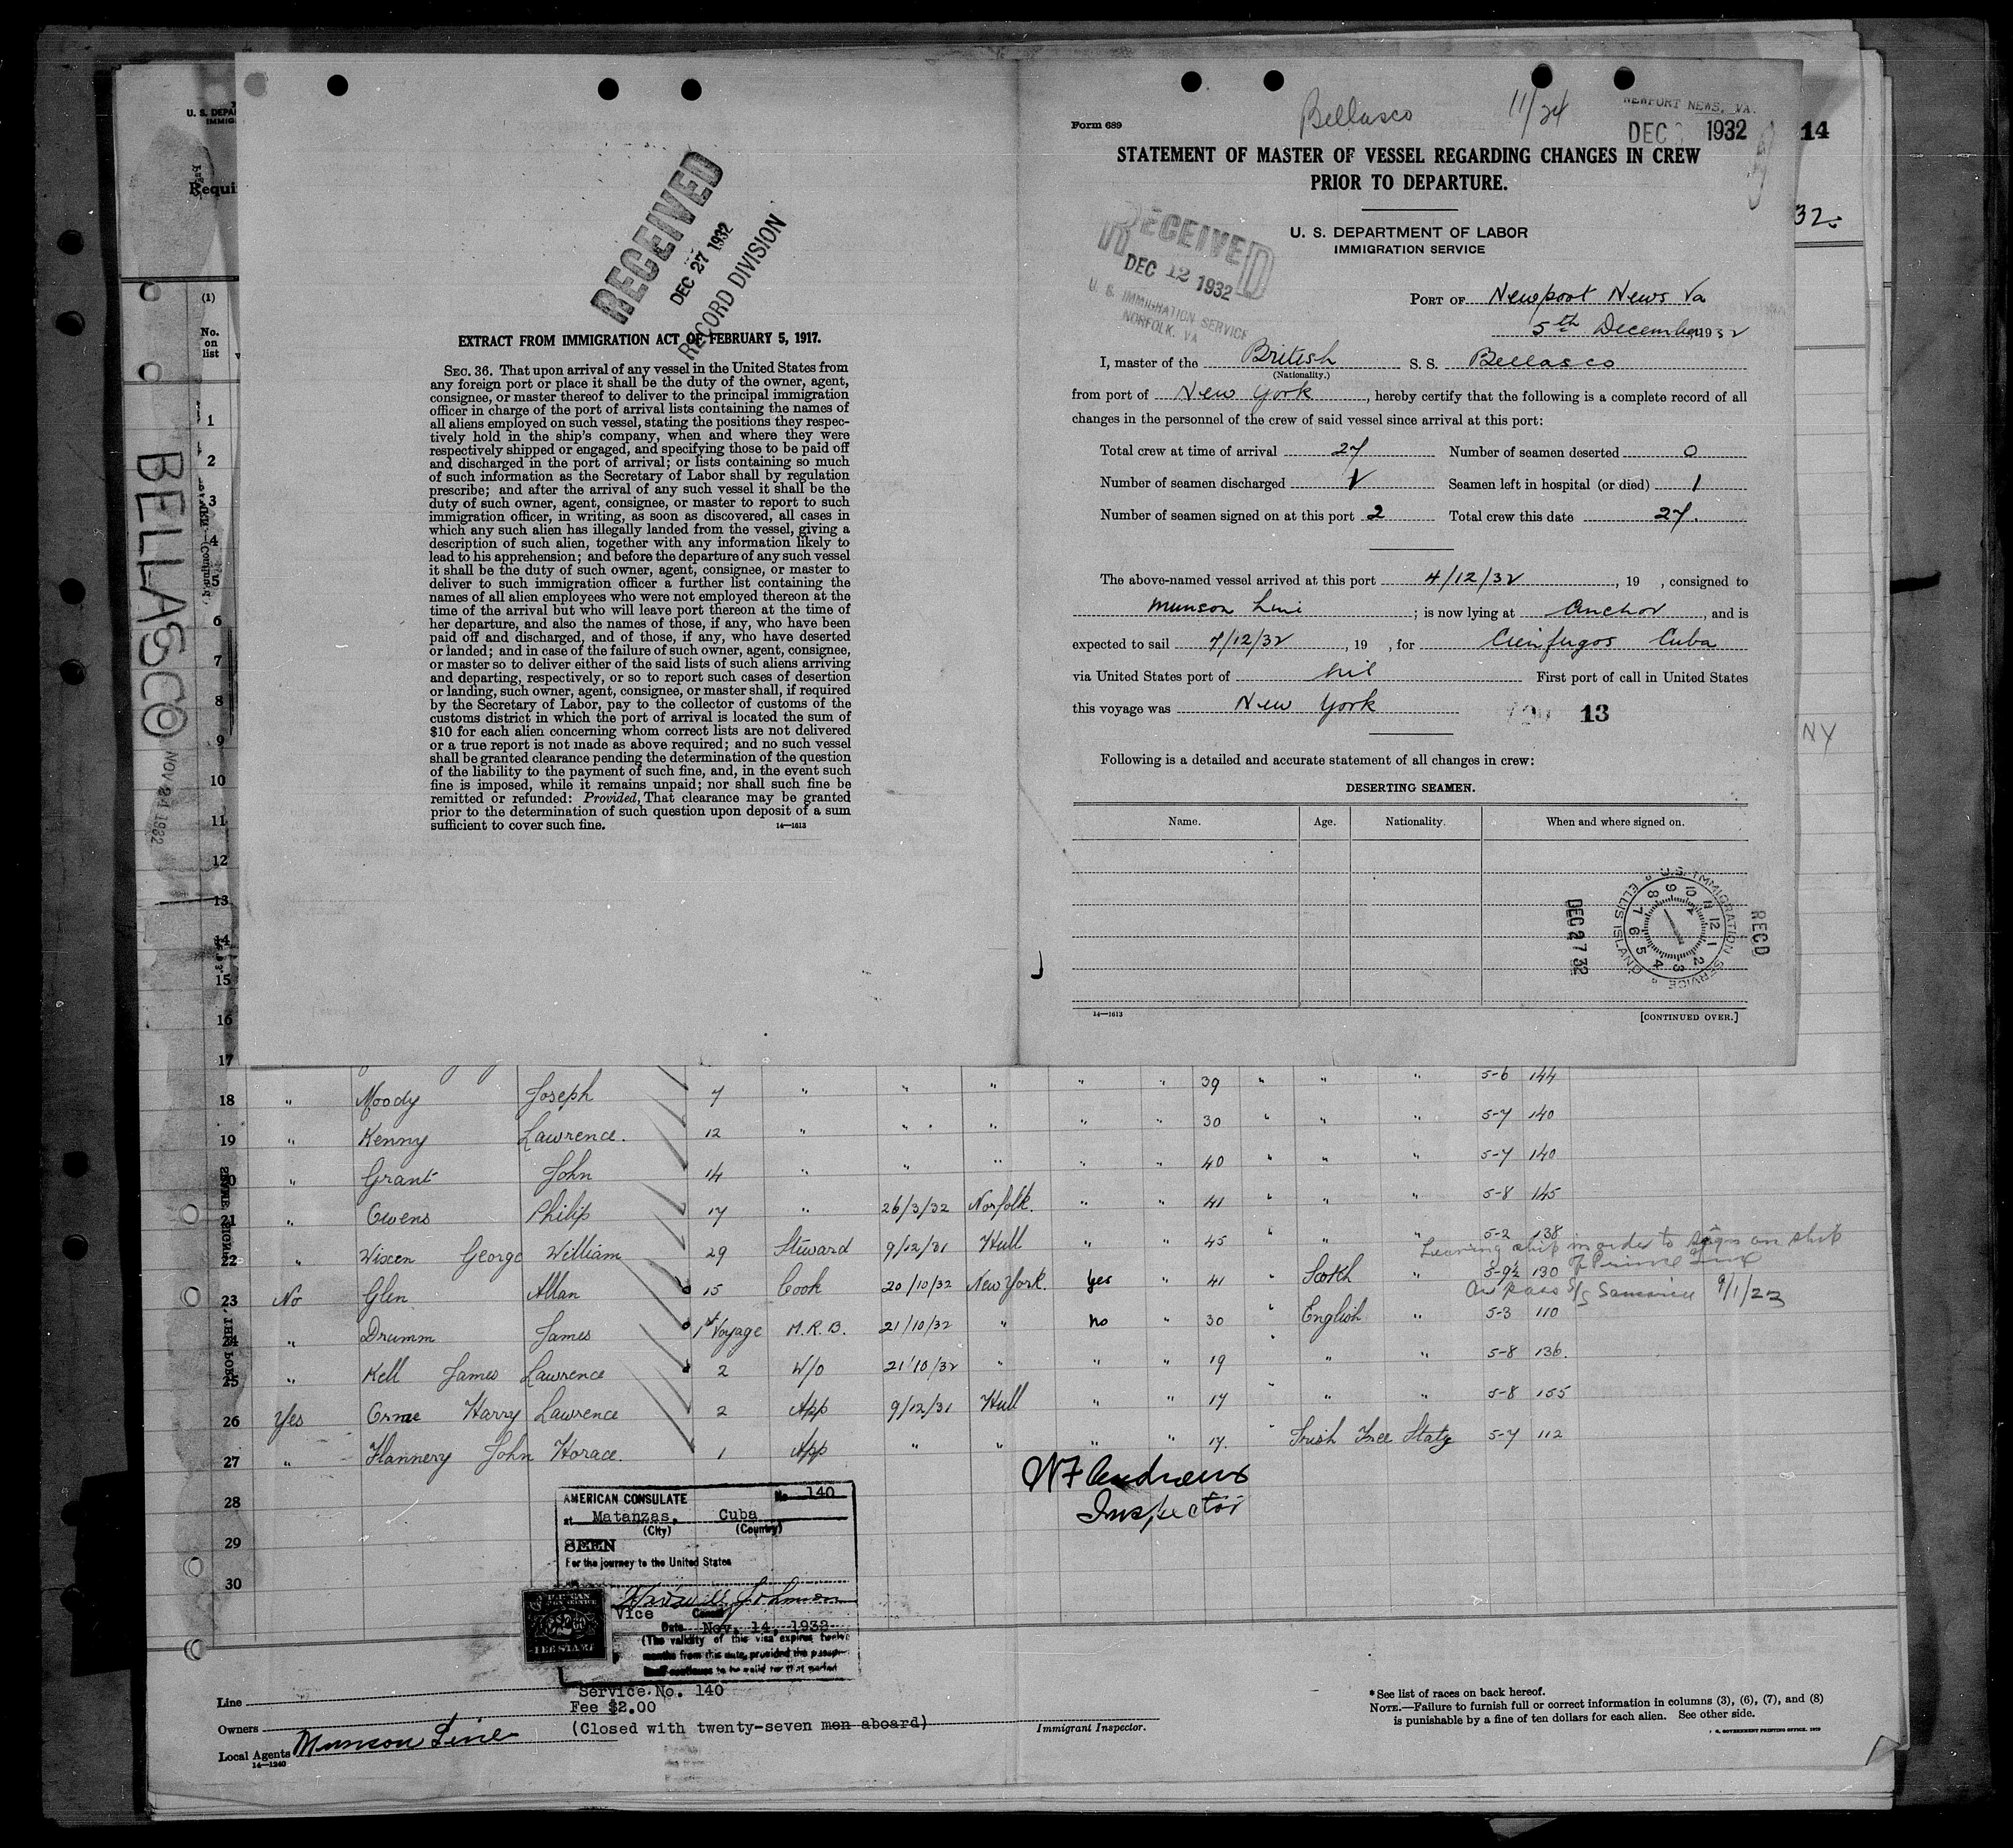 U. S. DEPA
IMMIG
Requi
(1)
No.
on
list
BELLASCO
NOV 24 1932
RECEIVED
DEC 27 1932
RECORD DIVISION
EXTRACT FROM IMMIGRATION ACT OF FEBRUARY 5, 1917.
SEC. 36. That upon arrival of any vessel in the United States from
any foreign port or place it shall be the duty of the owner, agent,
consignee, or master thereof to deliver to the principal immigration
officer in charge of the port of arrival lists containing the names of
all aliens employed on such vessel, stating the positions they respec-
tively hold in the ship's company, when and where they were
respectively shipped or engaged, and specifying those to be paid off
and discharged in the port of arrival; or lists containing so much
of such information as the Secretary of Labor shall by regulation
prescribe; and after the arrival of any such vessel it shall be the
duty of such owner, agent, consignee, or master to report to such
immigration officer, in writing, as soon as discovered, all cases in
which any such alien has illegally landed from the vessel, giving a
description of such alien, together with any information likely to
lead to his apprehension; and before the departure of any such vessel
it shall be the duty of such owner, agent, consignee, or master to
deliver to such immigration officer a further list containing the
names of all alien employees who were not employed thereon at the
time of the arrival but who will leave port thereon at the time of
her departure, and also the names of those, if any, who have been
paid off and discharged, and of those, if any, who have deserted
or landed; and in case of the failure of such owner, agent, consignee,
or master so to deliver either of the said lists of such aliens arriving
and departing, respectively, or so to report such cases of desertion
or landing, such owner, agent, consignee, or master shall, if required
by the Secretary of Labor, pay to the collector of customs of the
customs district in which the port of arrival is located the sum of
$10 for each alien concerning whom correct lists are not delivered
or a true report is not made as above required; and no such vessel
shall be granted clearance pending the determination of the question
of the liability to the payment of such fine, and, in the event such
fine is imposed, while it remains unpaid; nor shall such fine be
remitted or refunded: Provided, That clearance may be granted
prior to the determination of such question upon deposit of a sum
sufficient to cover such fine.
14—1613
Form 689
Bellasco 11/24
NEWPORT NEWS, VA.
DEC 1932
14
STATEMENT OF MASTER OF VESSEL REGARDING CHANGES IN CREW
PRIOR TO DEPARTURE.
32.
U. S. DEPARTMENT OF LABOR
IMMIGRATION SERVICE
RECEIVED
DEC 12 1932
U. S. IMMIGRATION SERVICE
NORFOLK, VA
PORT OF Newport News Va
5th December, 1932
I, master of the British S. S. Bellasco
(Nationality.)
from port of New York, hereby certify that the following is a complete record of all
changes in the personnel of the crew of said vessel since arrival at this port:
Total crew at time of arrival 27 Number of seamen deserted 0
Number of seamen discharged 1 Seamen left in hospital (or died) 1
Number of seamen signed on at this port 2 Total crew this date 27.
The above-named vessel arrived at this port 4/12/32, 19 , consigned to
Munson Line; is now lying at Anchor, and is
expected to sail 7/12/32, 19 , for Cienfugos Cuba
via United States port of nil First port of call in United States
this voyage was New York
13
NY
Following is a detailed and accurate statement of all changes in crew:
DESERTING SEAMEN.
Name. Age. Nationality. When and where signed on.
U.S. IMMIGRATION SERVICE
ELLIS ISLAND
RECD
DEC 27 32
14—1613
[CONTINUED OVER.]
1
2
3
4
5
6
7
8
9
10
11
12
13
14
15
16
17
39 " " " 5-6 144
18 " Moody Joseph 7 " " " " " 30 " " " 5-7 140
19 " Kenny Lawrence. 12 " " " " " 40 " " " 5-7 140
20 " Grant John 14 " " " " " 41 " " " 5-8 145
21 " Owens Philip 17 " 26/3/32 Norfolk. " " 45 " " " 5-2 138
22 Wixen George William 29 Steward 9/12/31 Hull
Leaving ship in order to sign on ship
23 No Glen Allan 15 Cook 20/10/32 New York. Yes " 41 " Scotch " 5-9½ 130
9/1/23
24 " Drumm James 1st Voyage M.R.B. 21/10/32 " no " 30 " English " 5-3 110
25 " Kell James Lawrence 2 W/O 21/10/32 " " " 19 " " 5-8 136.
26 Yes Orme Harry Lawrence 2 App 9/12/31 Hull " " 17 " " " 5-8 155
27 " Flannery John Horace. 1 App " " " " 17. " Irish Free State 5-7 112
28
29
30
W F Andrews
Inspector
AMERICAN CONSULATE No. 140
at Matanzas, Cuba
(City) (Country)
SEEN
For the journey to the United States
Vice Consul
Date Nov. 14, 1932
(The validity of this visa expires twelve
months from this date, provided the passport
itself continues to be valid for that period
Service No. 140
Fee $2.00
(Closed with twenty-seven men aboard)
Line
Owners
Local Agents Munson Line
14—1240
Immigrant Inspector.
* See list of races on back hereof.
NOTE.—Failure to furnish full or correct information in columns (3), (6), (7), and (8)
is punishable by a fine of ten dollars for each alien. See other side.